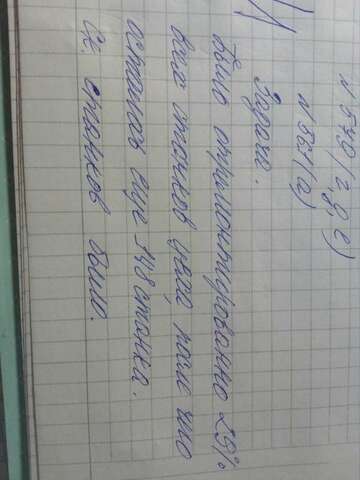 N 579 (г, д, е)
N 551 (а)
Задача.
Было отремонтированно 29%
всех станков цеха, после
осталось еще 142 станка.
Ск. станков было.